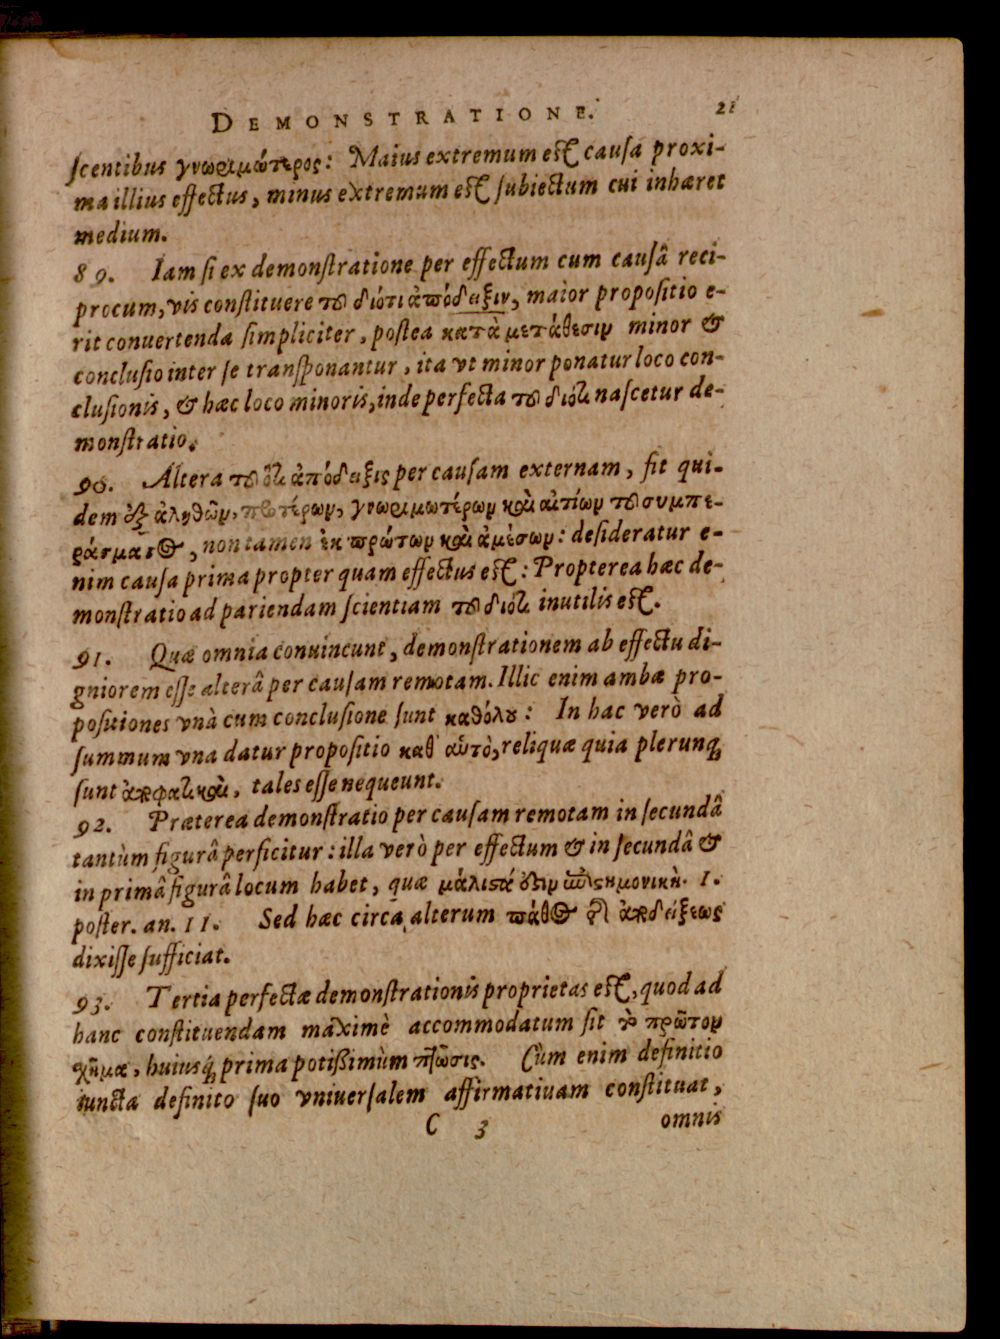 DEMONSTRATIONE. 21
scentibus γνωριμώτερος: Maius extremum est causa proxi-
ma illius effectus, minus extremum est subiectum cui inhæret
medium.
89. Iam si ex demonstratione per effectum cum causâ reci-
procum, vis constituere τοῦ διότι ἀπόδειξιν, maior propositio e-
rit conuertenda simpliciter, postea κατὰ μετάθεσιν minor &
conclusio inter se transponantur, ita vt minor ponatur loco con-
clusionis, & hæc loco minoris, inde perfecta τοῦ διότι nascetur de-
monstratio.
90. Altera τοῦ ὅτι ἀπόδειξις per causam externam, fit qui-
dem ἐξ ἀληθῶν, προτέρων, γνωριμωτέρων καὶ αἰτίων τοῦ συμπε-
ράσματος, non tamen ἐκ πρώτων καὶ ἀμέσων: desideratur e-
nim causa prima propter quam effectus est: Propterea hæc de-
monstratio ad pariendam scientiam τοῦ διότι inutilis est.
91. Quæ omnia conuincunt, demonstrationem ab effectu di-
gniorem esse alterâ per causam remotam. Illic enim ambæ pro-
positiones vnà cum conclusione sunt καθόλου: In hac verò ad
summum vna datur propositio καθ' αὑτὸ, reliquæ quia plerunq;
sunt ἀποφατικαὶ, tales esse nequeunt.
92. Præterea demonstratio per causam remotam in secundâ
tantùm figurâ perficitur: illa verò per effectum & in secundâ &
in primâ figurâ locum habet, quæ μάλιστά ἐστιν ἐπιστημονικὴ. 1.
poster. an. 11. Sed hæc circa alterum πάθος τῆς ἀποδείξεως
dixisse sufficiat.
93. Tertia perfectæ demonstrationis proprietas est, quod ad
hanc constituendam maximè accommodatum sit τὸ πρῶτον
χῆμα, huiusq; prima potißimùm πτῶσις. Cùm enim definitio
iuncta definito suo vniuersalem affirmatiuam constituat,
C 3 omnis